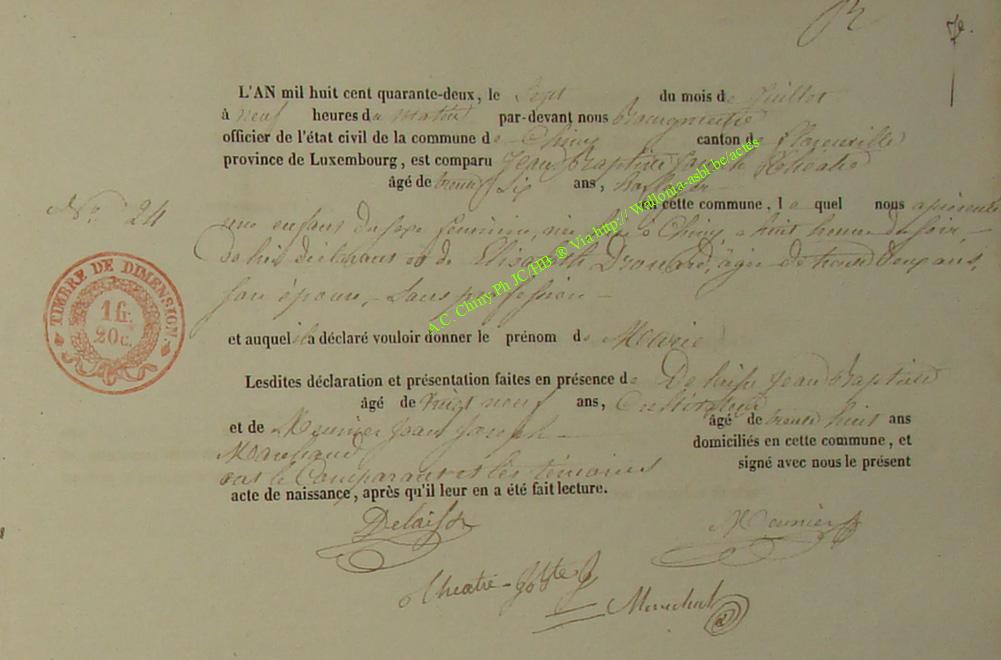 L'AN mil huit cent quarante-deux, le Sept du mois de Juillet
à neuf heures du matin par-devant nous Bourgmestre
officier de l'état civil de la commune de Chiny canton de Florenville
province de Luxembourg, est comparu Jean Baptiste Theatre
âgé de trente six ans,
en cette commune, le quel nous a présenté
N° 24
une enfant du sexe féminin, née à Chiny, à huit heures du soir,
de lui déclarant et de Elisabeth Drouard, âgée de trente deux ans,
son épouse, sans profession
et auquel il a déclaré vouloir donner le prénom de Marie
Lesdites déclaration et présentation faites en présence de Delaisse Jean Baptiste
âgé de vingt neuf ans, Cultivateur
et de Meunier Jean Joseph âgé de trente huit ans
domiciliés en cette commune, et
ont le Comparant et les témoins signé avec nous le présent
acte de naissance, après qu'il leur en a été fait lecture.
TIMBRE DE DIMENSION.
1 fr.
20 c.
A.C. Chiny Ph JC/HB ® Via http:// Wallonia-asbl be/actes
Delaisse Meunier
Theatre Marechal